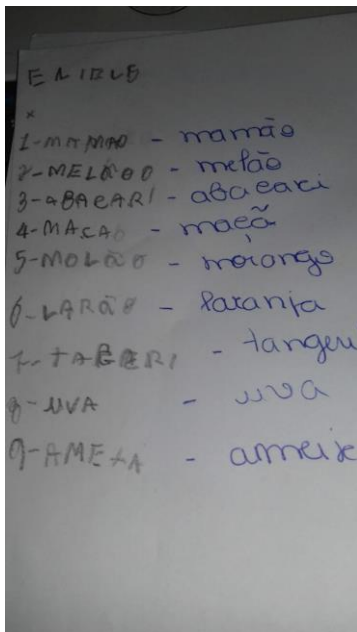 1-MAMAO - mamão
2-MELÃOO - melão
3-ABACARI - abacaxi
4-MACAO - maçã
5-MOLÃO - morango
6-LARÃO - laranja
7-TAGERI - tangeri
8-UVA - uva
9-AMEXA - ameixa